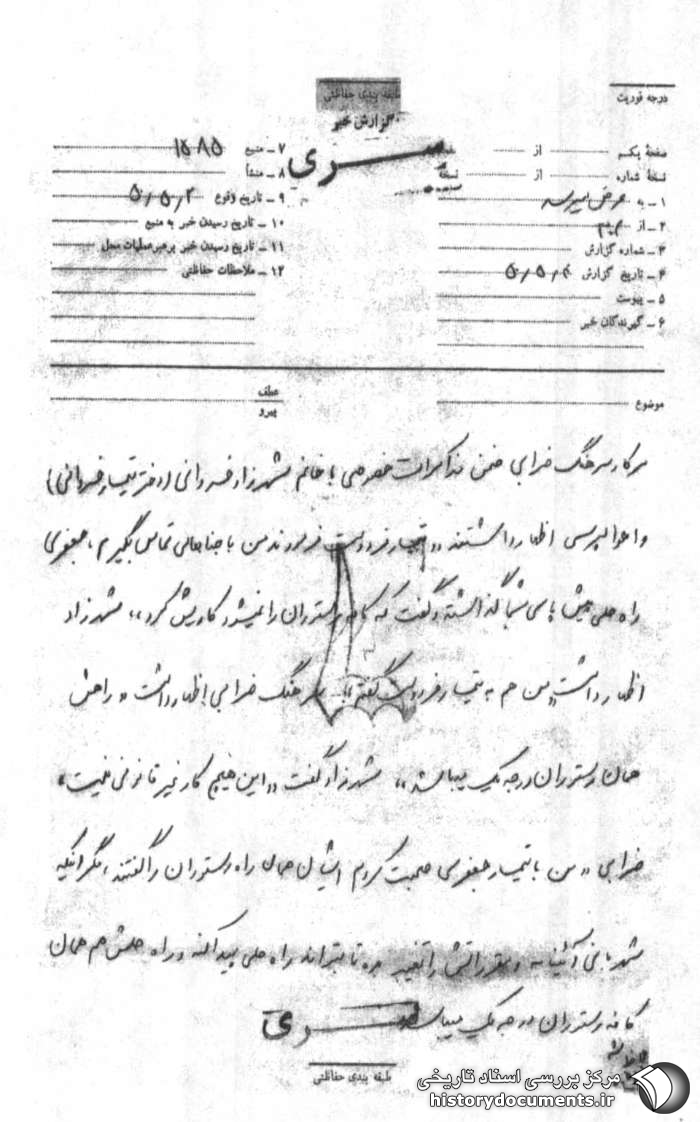 طبقه بندی حفاظتی
گزارش خبر
درجه فوریت
سری
صفحهٔ یکم از صفحه
نسخهٔ شماره از نسخهٔ
۱ ـ به عرض میرسد
۲ ـ از
۳ ـ شماره گزارش
۴ ـ تاریخ گزارش
۵ ـ پیوست
۶ ـ گیرندگان خبر
۷ ـ منبع ۱۵۸۵
۸ ـ منشأ
۹ ـ تاریخ وقوع ۵۰/۵/۲
۱۰ ـ تاریخ رسیدن خبر به منبع
۱۱ ـ تاریخ رسیدن خبر برهبر عملیات محل
۱۲ ـ ملاحظات حفاظتی
موضوع
عطف
پیرو
سرکار سرهنگ ضرابی ضمن مذاکرات خصوصی با خانم شهرزاد (دختر تیمسار
و احوالپرسی اظهار داشتند ,, تیمسار فردوست فرمودند من با جنابعالی تماس بگیرم ، جعفری
راه حلی پیش پای شما گذاشته و گفت که کافه رستوران را نمیشود کاریش کرد ,, شهرزاد
اظهار داشت ,, من هم به تیمسار فردوست گفتم ,, سرهنگ ضرابی اظهار داشت ,, راهش
همان رستوران درجه یک میباشد ,, شهرزاد گفت ,, این هیچ کار غیر قانونی نیست ,,
ضرابی ,, من با تیمسار جعفری صحبت کردم ایشان همان راه رستوران را گفتند ، مگر اینکه
شهربانی آئیننامه و مقرراتش را تغییر بده تا بتواند راه حلی پیدا کند و راه حلش هم همان
کافه رستوران درجه یک میباشد
سری
طبقه بندی حفاظتی
مرکز بررسی اسناد تاریخی
historydocuments.ir